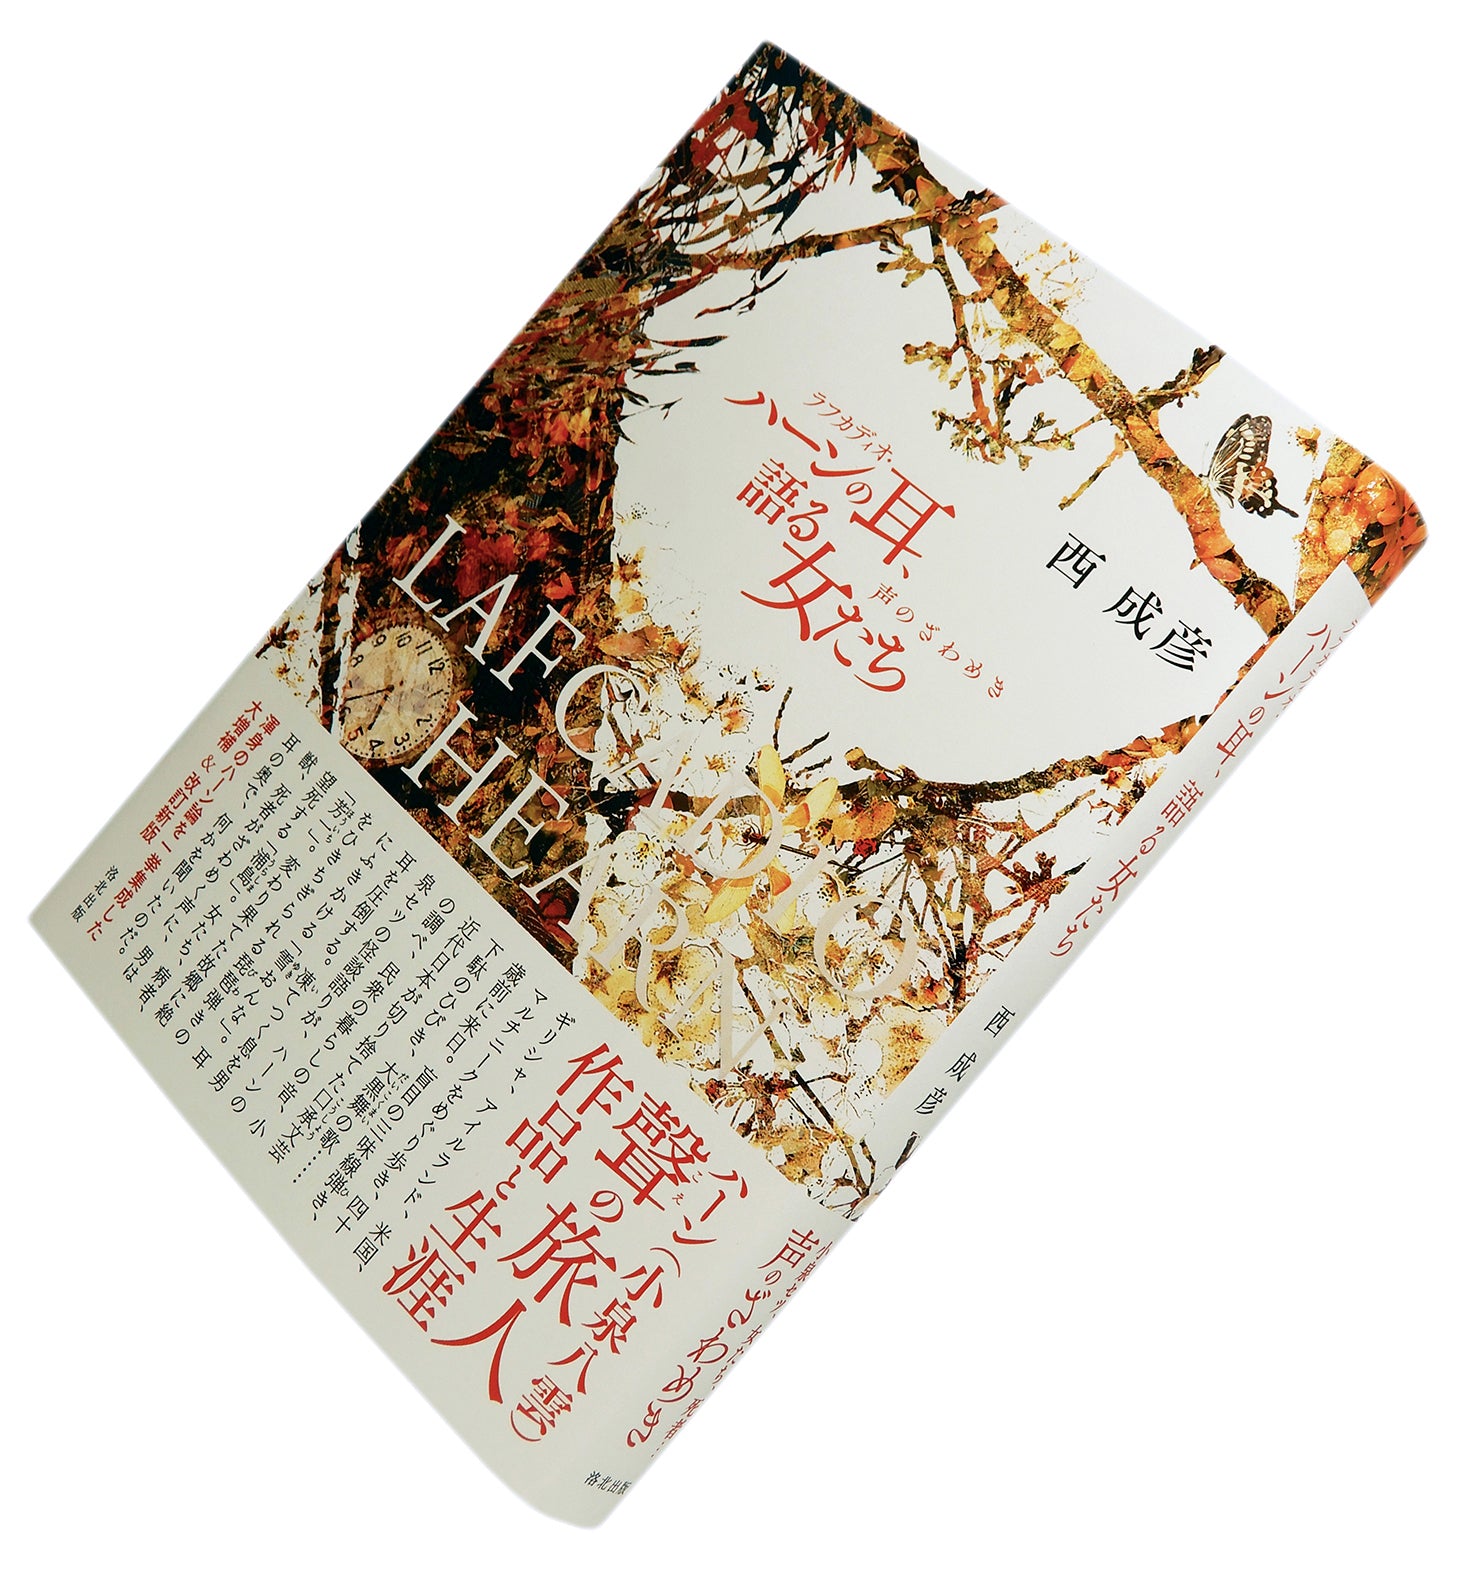 ラフカディオ・
ハーンの耳、
語る女たち
声のざわめき
西 成彦
LAFCADIO
HEARN
ハーン(小泉八雲)
聲の旅人
こえ
作品と生涯
ギリシャ、アイルランド、米国、
マルチニークをめぐり歩き、四十
歳前に来日。盲目の三味線弾き、
下駄のひびき、大黒舞の歌……
近代日本が切り捨てた口承文芸
の調べ、民衆の暮らしの音、小
泉セツの怪談語りが、ハーンの
耳を圧倒する。凍てつく息を男の
にふきかける「雪おんな」。耳
をひきちぎられる琵琶弾きの
「芳一」。変わり果てた故郷に絶
望死する「浦島」。女たち、病者、
獣、死者がざわめく声に、男は
耳の奥で、何かを聞いたのだ。
渾身のハーン論を一挙集成した
大増補&改訂新版
洛北出版
ハーンの耳、語る女たち
西 成彦
声のざわめき
洛北出版